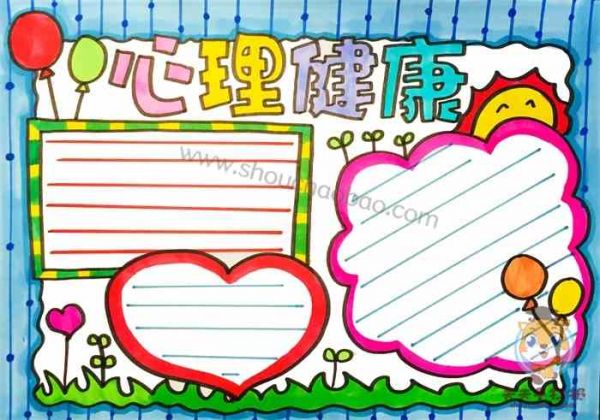 心理健康
www.shouchaobao.com